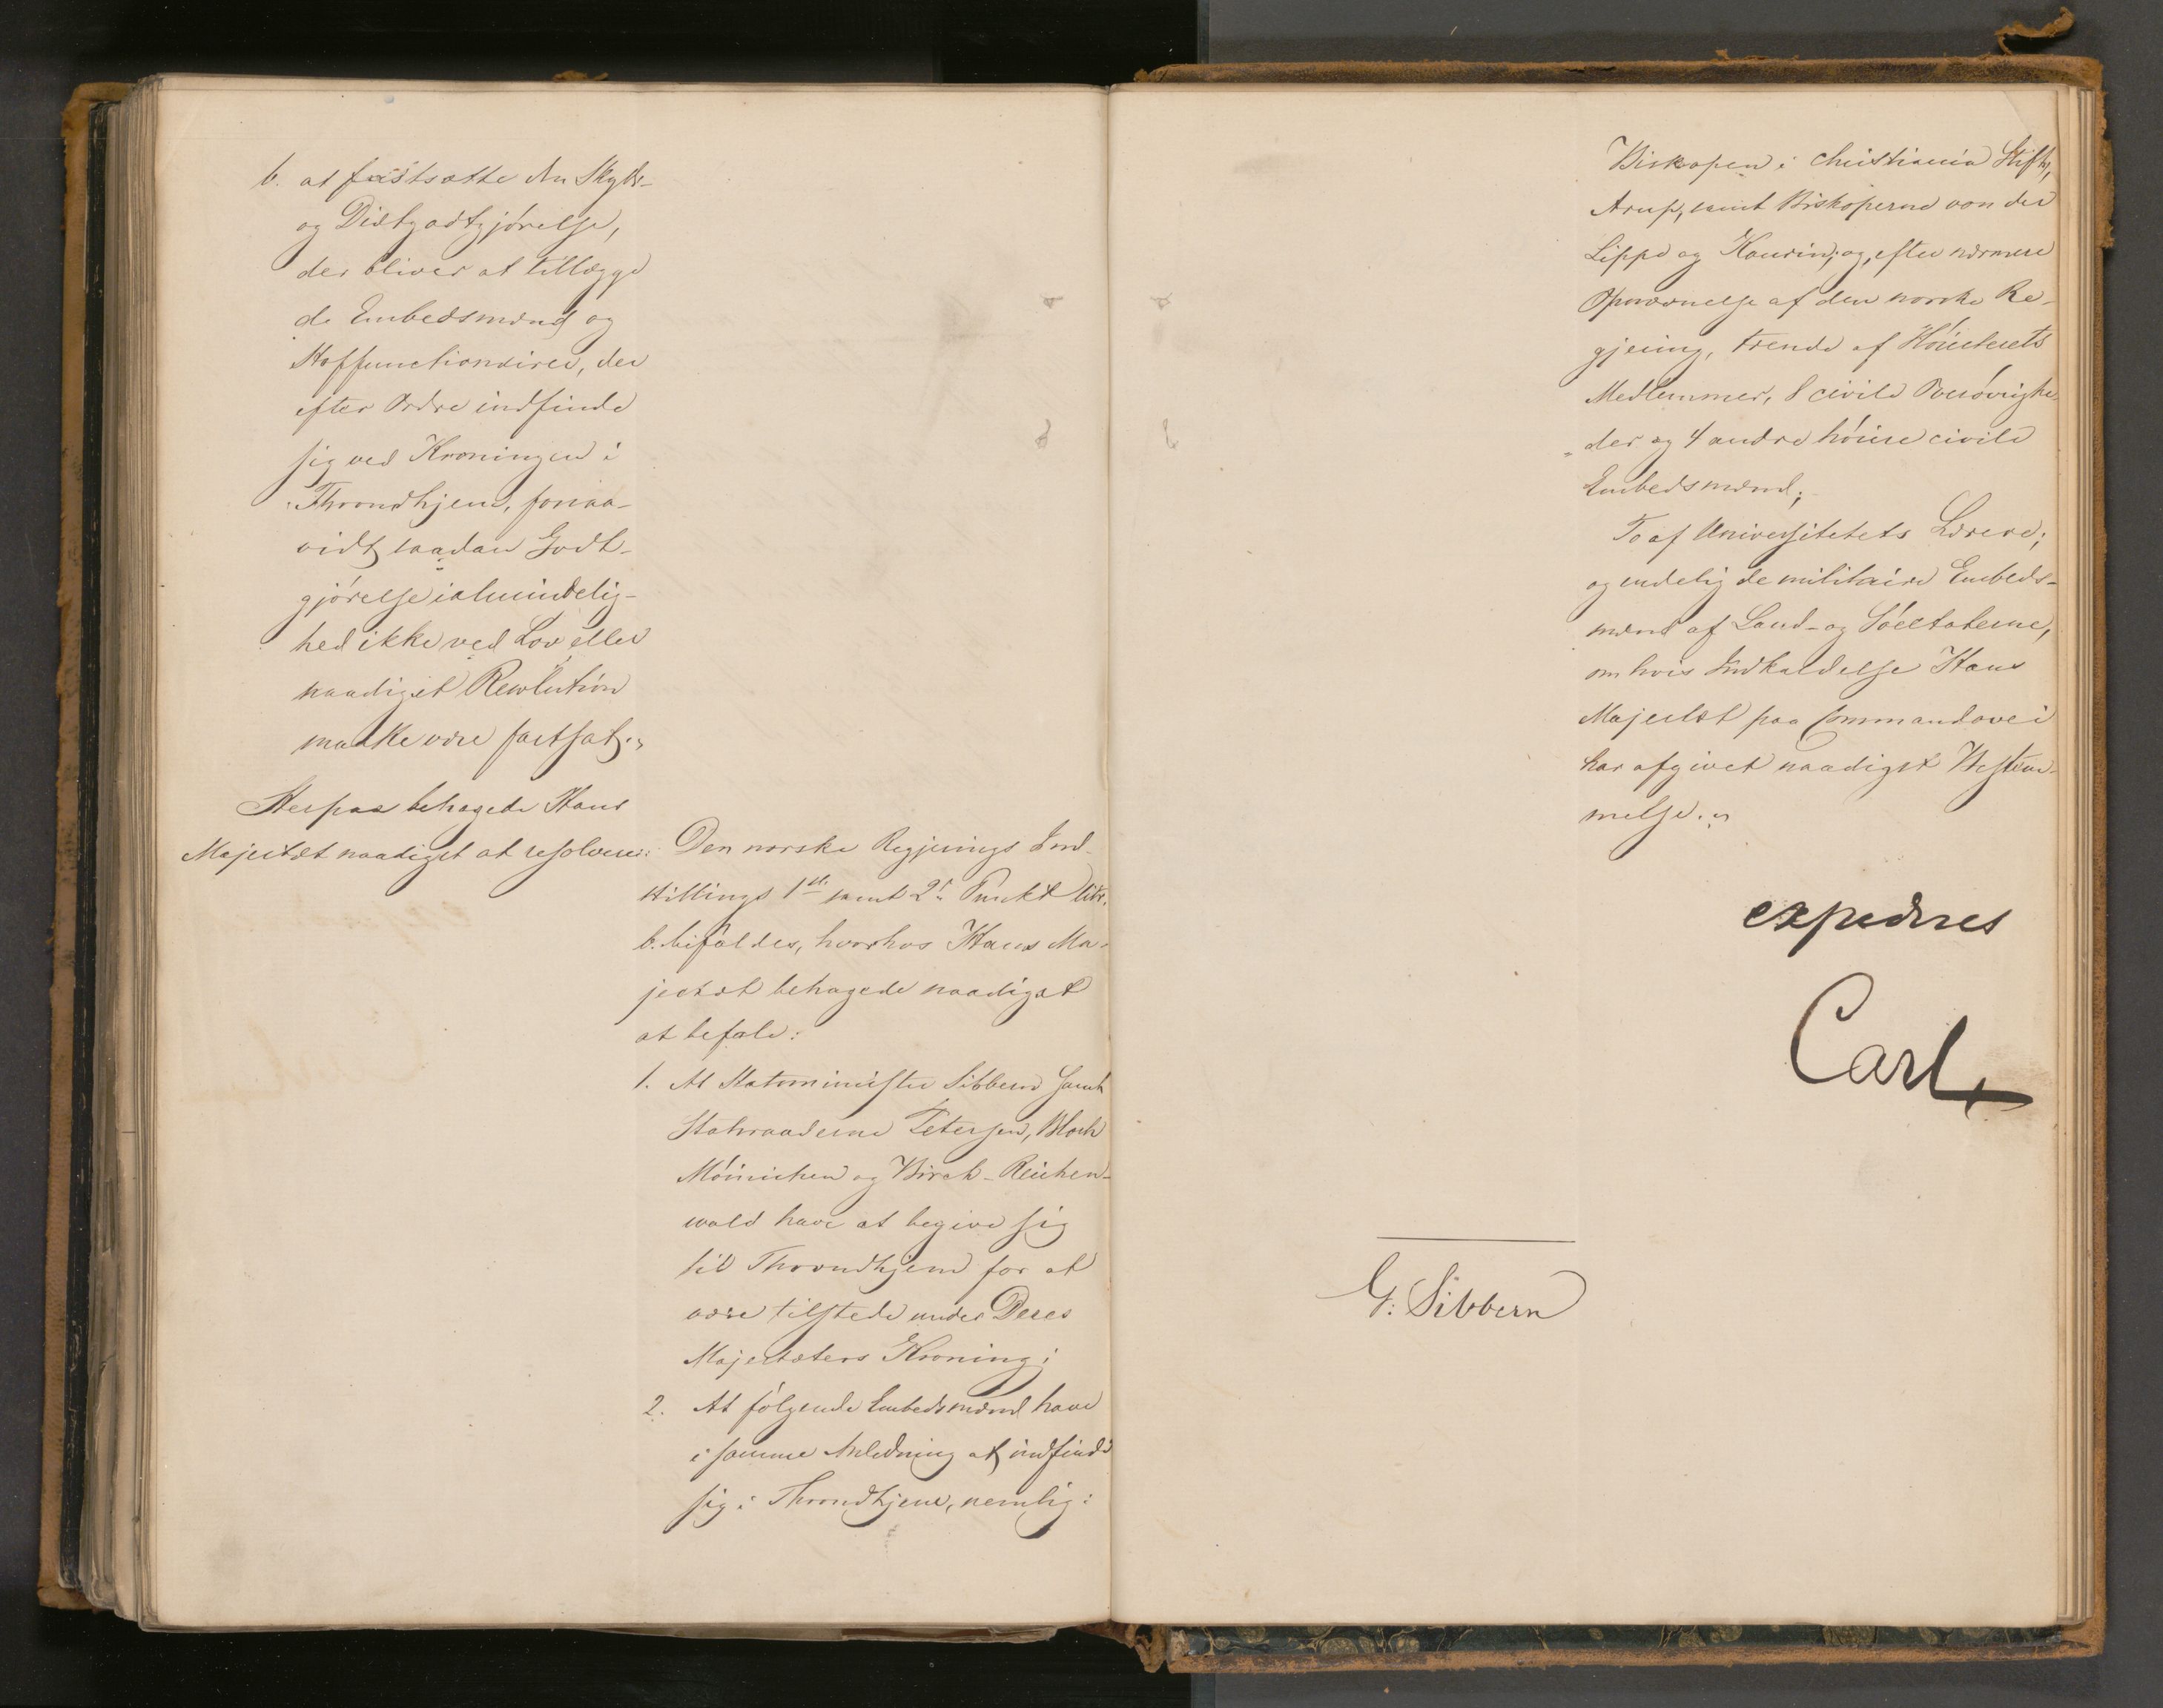 b. at fastsætte den Skyds-
og Diætgodtgjørelse,
der bliver at tillægge
de Embedsmænd og
Hoffunctionairer, der
efter Ordre indfinde
sig ved Kroningen i
Throndhjem, forsaa-
vidt saadan Godt-
gjørelse ialmindelig-
hed ikke ved Lov eller
naadigst Resolution
maatte være fastsat."
Herpaa behagede Hans
Majestæt naadigst at resolvere:
Den norske Regjerings Ind-
stillings 1ste samt 2d Punkt litr.
b. bifaldes, hvorhos Hans Ma-
jestæt behagede naadigst
at befale:
1. At Statsminister Sibbern samt
Statsraaderne Petersen, Bloch
Mönnichen og Birch-Reichen-
wald have at begive sig
til Throndhjem for at
være tilstede under Deres
Majestæters Kroning;
2. At følgende Embedsmænd have
i samme Anledning at indfinde
sig i Throndhjem, nemlig:
Biskopen i Christiania Stift,
Arup, samt Biskoperne von der
Lippe og Kaurin; og, efter nærmere
Opnævnelse af den norske Re-
gjering, trende af Høiesterets
Medlemmer, 8 civile Overøvrighe-
der og 4 andre høiere civile
Embedsmænd;
To af Universitetets Lærere;
og endelig de militaire Embeds-
mænd af Land- og Söeetaterne,
om hvis Indkaldelse Hans
Majestæt paa Commandovei
har afgivet naadigst Bestem-
melse."
expederes
Carl
G. Sibbern